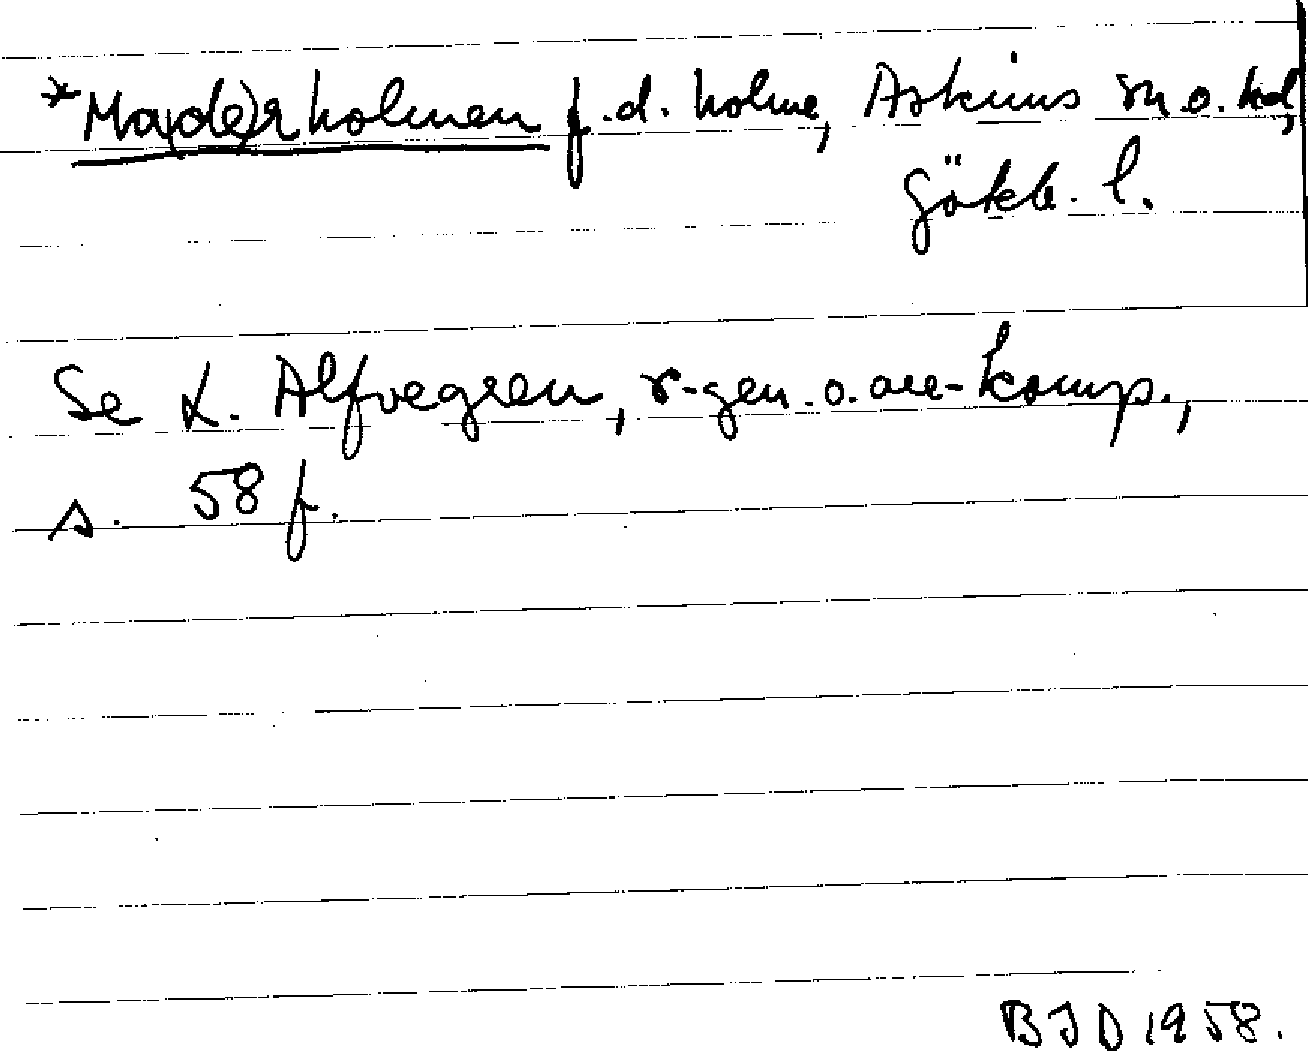 *Ma(de)rholmen f.d. holme, Askims sn o. hd,
Göteb. l.
Se L. Alfvegren, r-gen. o. are-komp.,
s. 58 f.
BJD 1958.